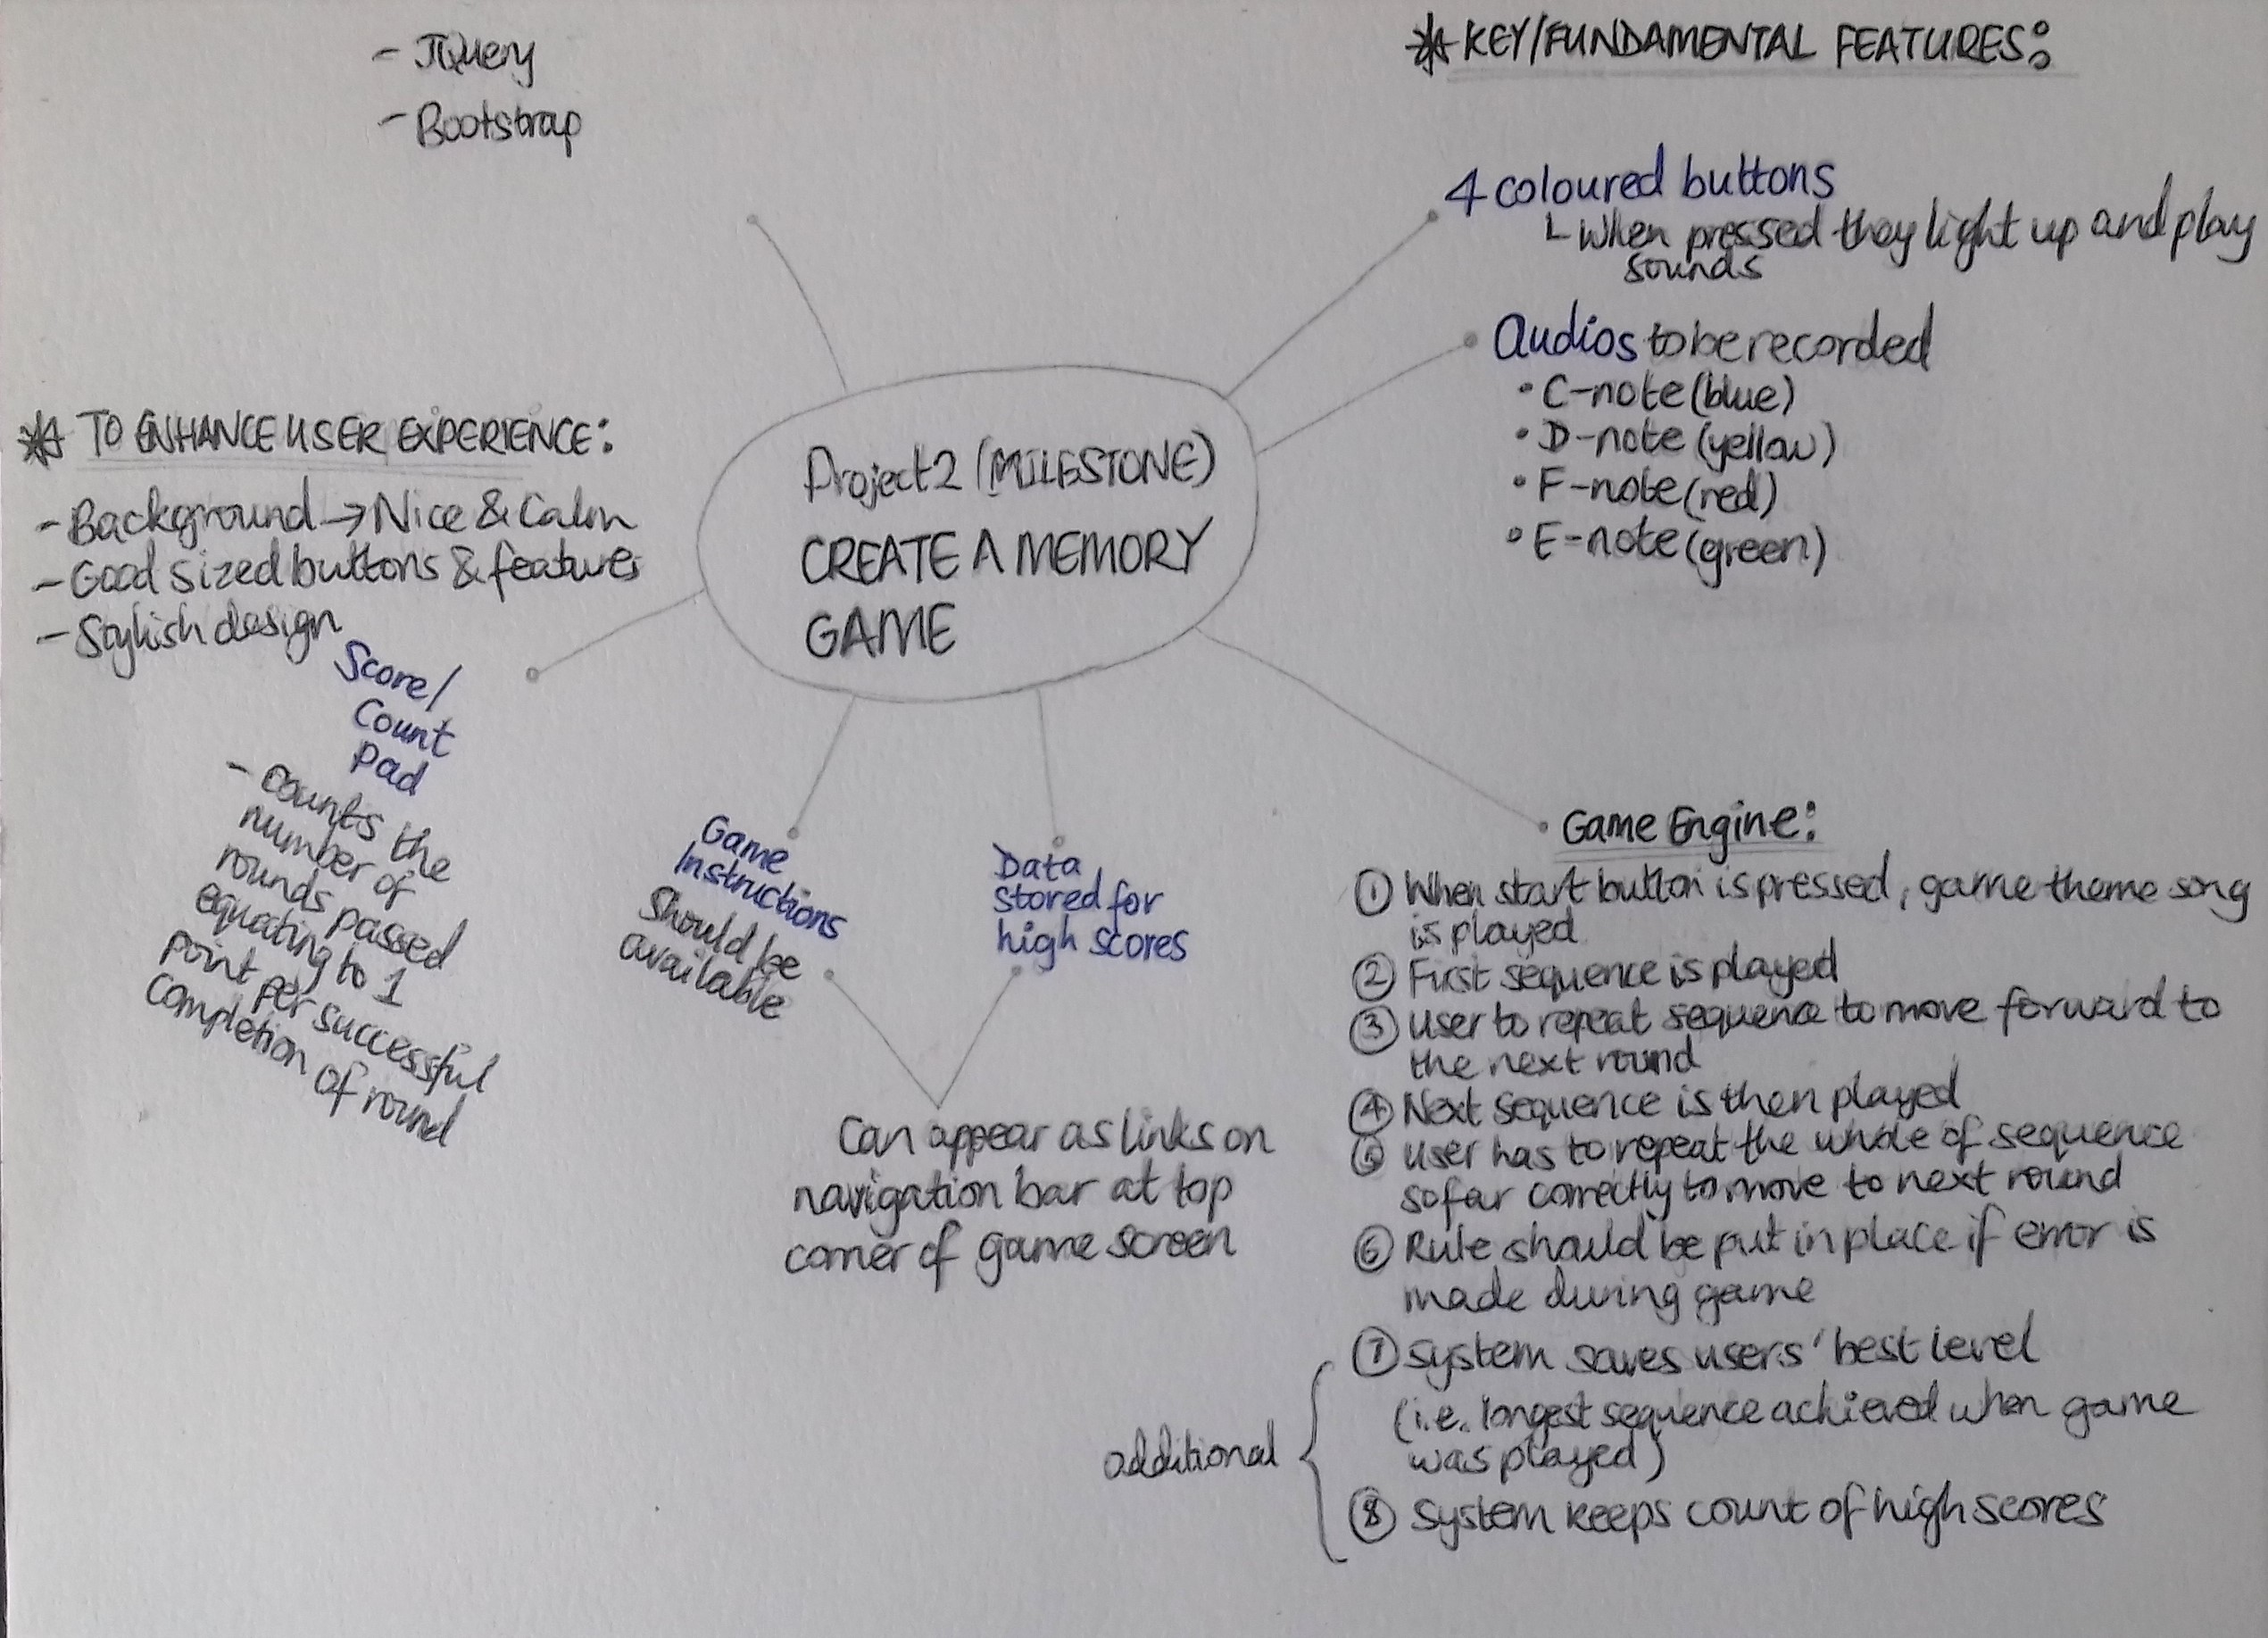 - JQuery
- Bootstrap
* KEY/FUNDAMENTAL FEATURES:
4 coloured buttons
When pressed they light up and play
sounds
Audios to be recorded
• C-note (blue)
• D-note (yellow)
• F-note (red)
• E-note (green)
Project 2 (MILESTONE)
CREATE A MEMORY
GAME
* TO ENHANCE USER EXPERIENCE:
- Background → Nice & Calm
- Good sized buttons & features
- Stylish design
Score/
Count
Pad
- counts the
number of
rounds passed
equating to 1
point per successful
completion of round
Game
Instructions
should be
available
Data
stored for
high scores
Can appear as links on
navigation bar at top
corner of game screen
Game Engine:
① When start button is pressed, game theme song
is played
② First sequence is played
③ User to repeat sequence to move forward to
the next round
④ Next sequence is then played
⑤ User has to repeat the whole of sequence
so far correctly to move to next round
⑥ Rule should be put in place if error is
made during game
⑦ System saves users' best level
(i.e. longest sequence achieved when game
was played)
⑧ System keeps count of high scores
additional